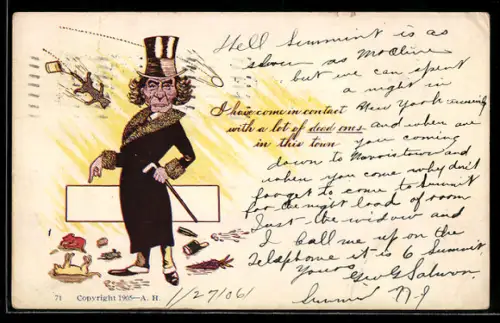 Hell Summint is as
slow as Moline
but we can spent
a night in
New York evening
I have come in contact
with a lot of dead ones and when are
in this town you coming
down to Norristown and
when you come why don't
forget to come to Summit
for the night load of room
Just the widow and
I call me up on the
Telephone it is 6 Summit
Yours
Geo G Salmon
Summit NJ
71 Copyright 1905—A. H.
1/27/061